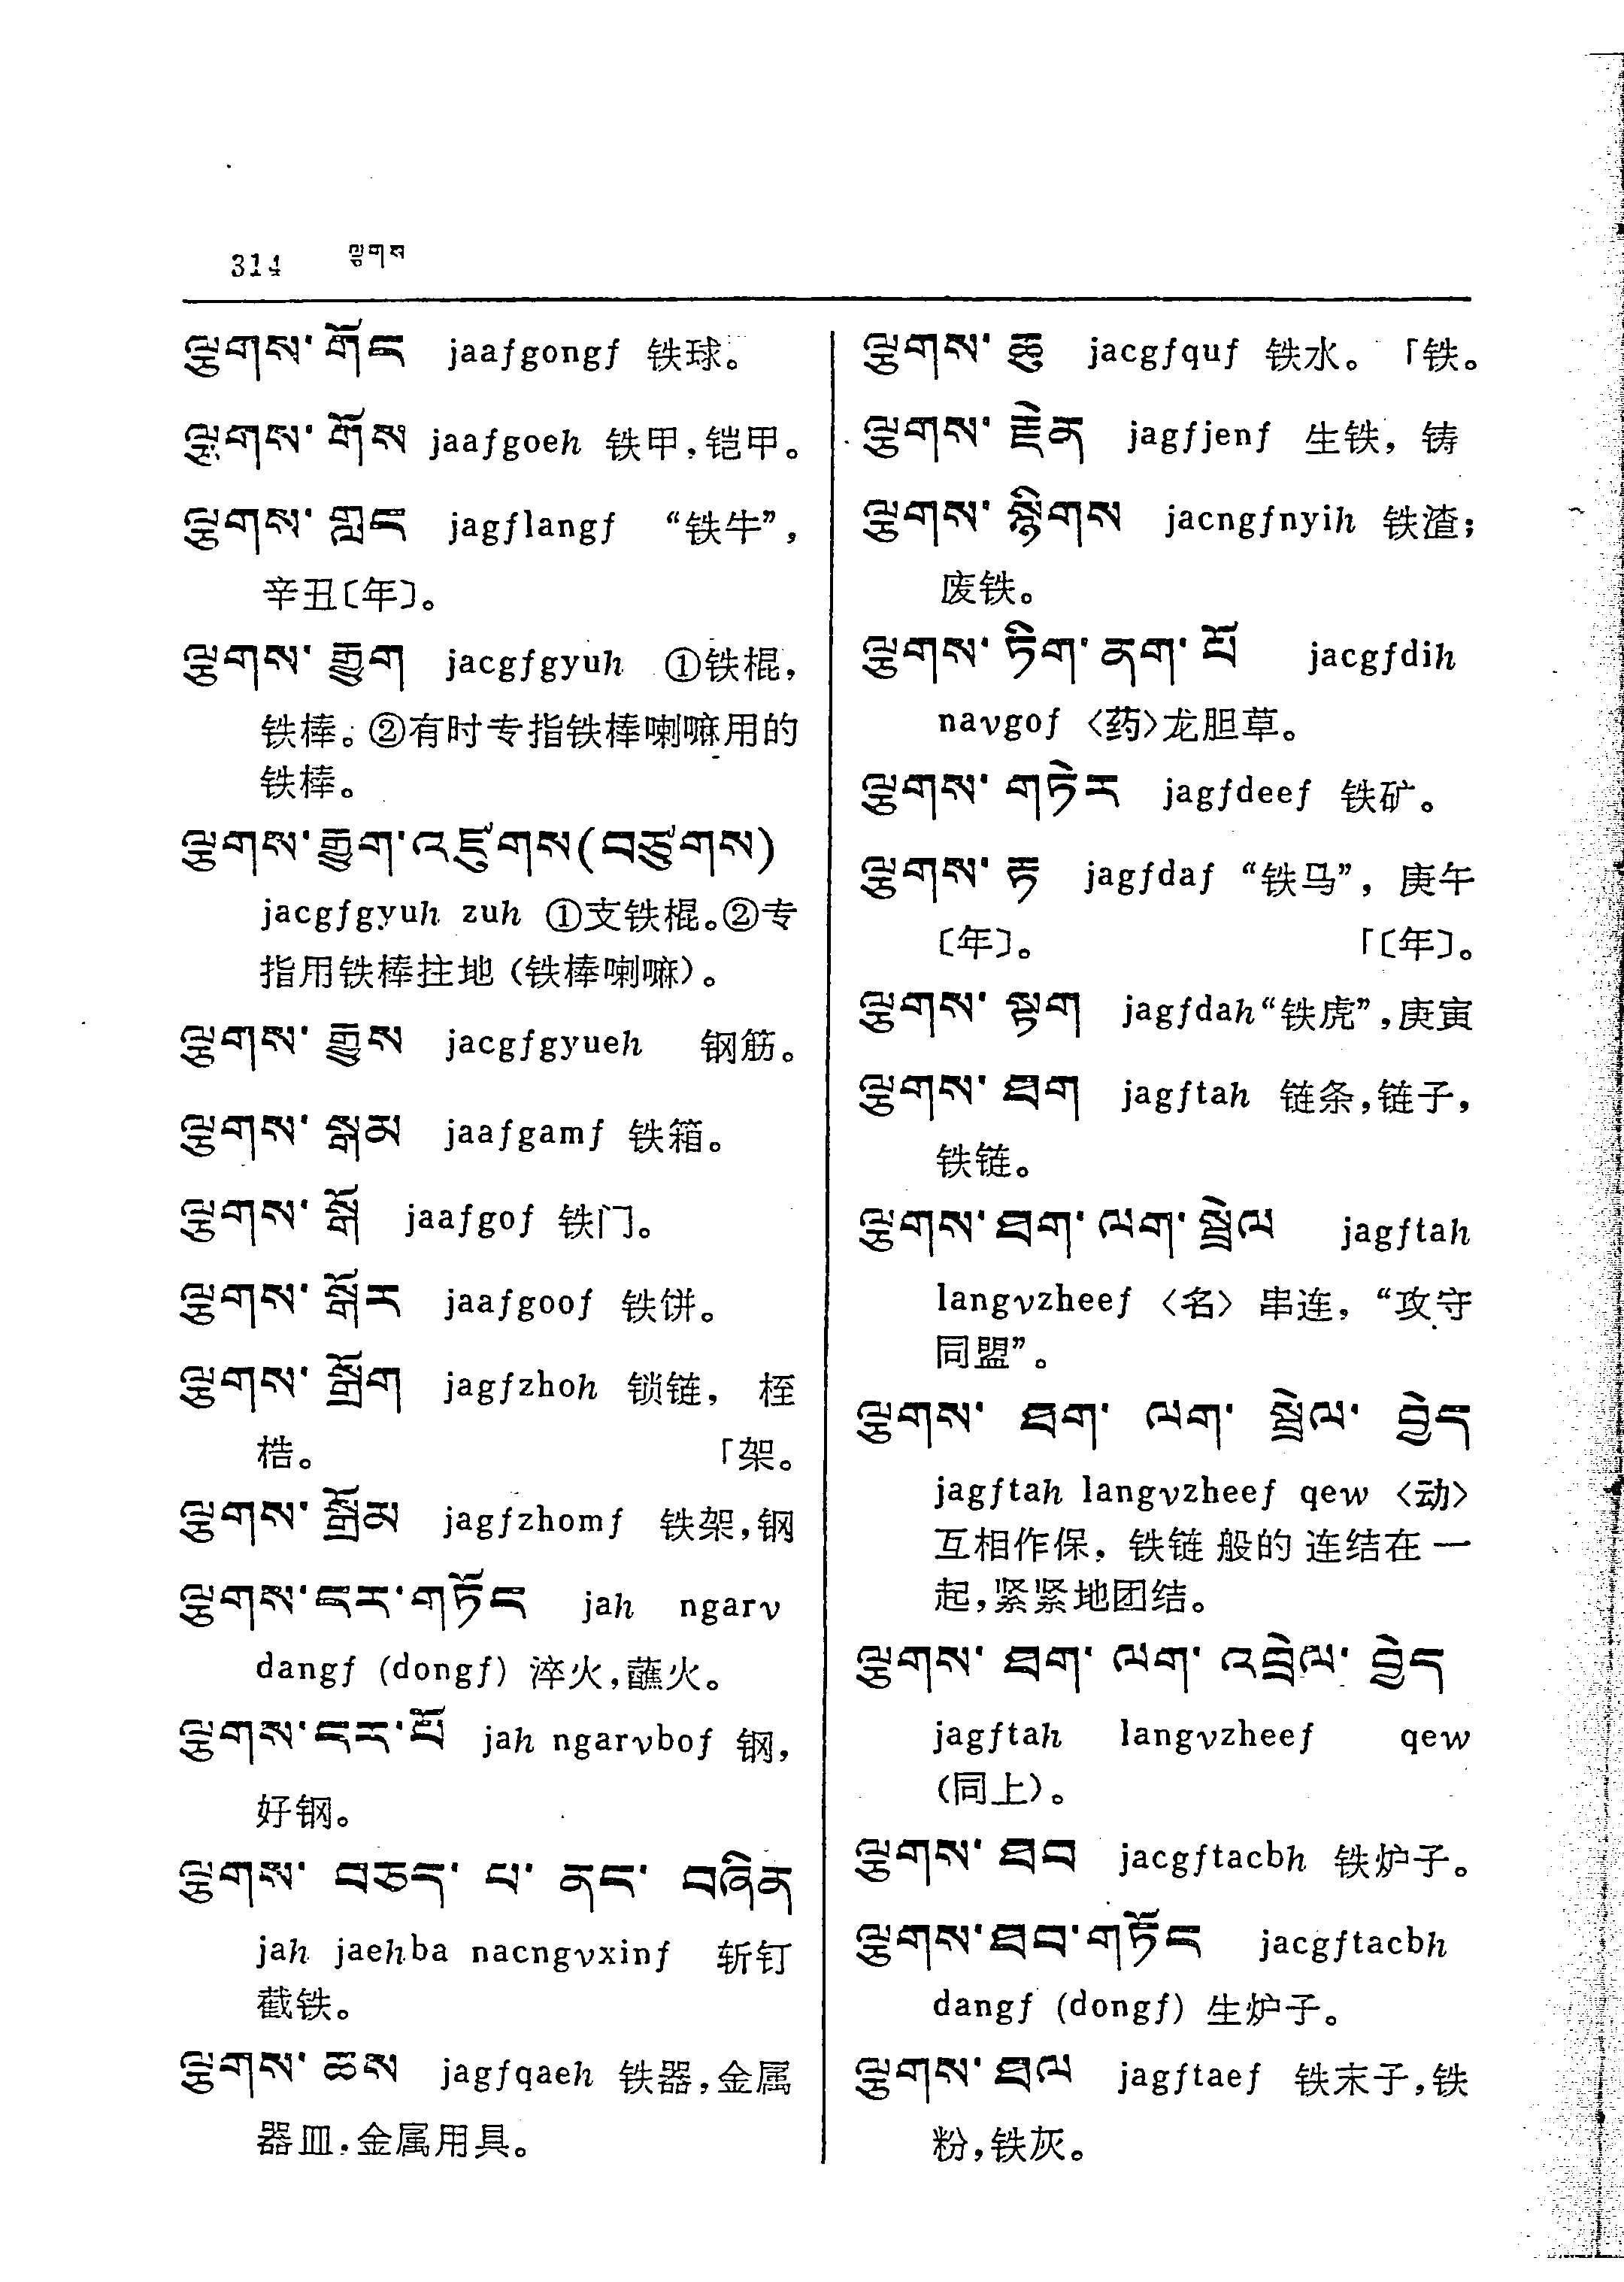 314 ལྕགས
ལྕགས་གོང jaafgongf 铁球。
ལྕགས་གོས jaafgoeh 铁甲,铠甲。
ལྕགས་གླང jagflangf “铁牛”,
辛丑〔年〕。
ལྕགས་རྒྱུག jacgfgyuh ①铁棍,
铁棒。②有时专指铁棒喇嘛用的
铁棒。
ལྕགས་རྒྱུག་འཛུགས(བཙུགས)
jacgfgyuh zuh ①支铁棍。②专
指用铁棒拄地(铁棒喇嘛)。
ལྕགས་རྒྱུས jacgfgyueh 钢筋。
ལྕགས་སྒམ jaafgamf 铁箱。
ལྕགས་སྒོ jaafgof 铁门。
ལྕགས་སྒོར jaafgoof 铁饼。
ལྕགས་སྒྲོག jagfzhoh 锁链, 桎
梏。 「架。
ལྕགས་སྒྲོམ jagfzhomf 铁架,钢
ལྕགས་ངར་གཏོང jah ngarv
dangf (dongf) 淬火,蘸火。
ལྕགས་ངར་པོ jah ngarvbof 钢,
好钢。
ལྕགས་ བཅད་ པ་ ནང་ བཞིན
jah jaehba nacngvxinf 斩钉
截铁。
ལྕགས་ཆས jagfqaeh 铁器,金属
器皿,金属用具。
ལྕགས་ཆུ jacgfquf 铁水。 「铁。
ལྕགས་ཇེན jagfjenf 生铁, 铸
ལྕགས་སྙིགས jacngfnyih 铁渣;
废铁。
ལྕགས་ཏིག་ནག་པོ jacgfdih
navgof 〈药〉龙胆草。
ལྕགས་གཏེར jagfdeef 铁矿。
ལྕགས་རྟ jagfdaf “铁马”, 庚午
〔年〕。 「〔年〕。
ལྕགས་སྟག jagfdah“铁虎”,庚寅
ལྕགས་ཐག jagftah 链条,链子,
铁链。
ལྕགས་ཐག་ལག་སྦྲེལ jagftah
langvzheef 〈名〉 串连, “攻守
同盟”。
ལྕགས་ ཐག་ ལག་ སྦྲེལ་ བྱེད
jagftah langvzheef qew 〈动〉
互相作保, 铁链 般的 连结在 一
起,紧紧地团结。
ལྕགས་ ཐག་ ལག་ འབྲེལ་ བྱེད
jagftah langvzheef qew
(同上)。
ལྕགས་ཐབ jacgftacbh 铁炉子。
ལྕགས་ཐབ་གཏོང jacgftacbh
dangf (dongf) 生炉子。
ལྕགས་ཐལ jagftaef 铁末子,铁
粉,铁灰。